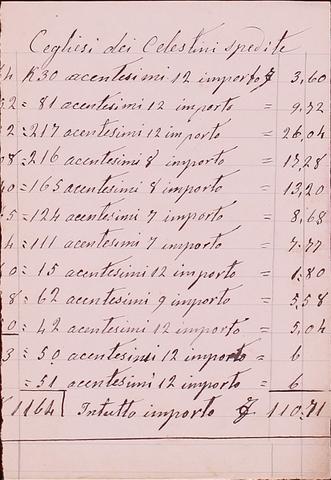 Cegliesi dei Celestini spedite
4 K 30 acentesimi 12 importo ₤ 3,60
32 = 81 acentesimi 12 importo = 9,72
2 = 217 acentesimi 12 importo = 26,04
08 = 216 acentesimi 8 importo = 17,28
0 = 165 acentesimi 8 importo = 13,20
5 = 124 acentesimi 7 importo = 8,68
4 = 111 acentesimi 7 importo = 7.77
0 = 15 acentesimi 12 importo = 1.80
8 = 62 acentesimi 9 importo = 5,58
0 = 42 acentesimi 12 importo = 5,04
3 = 50 acentesimi 12 importo = 6
= 51 acentesimi 12 importo = 6
1164 Intutto importo ₤ 110.71